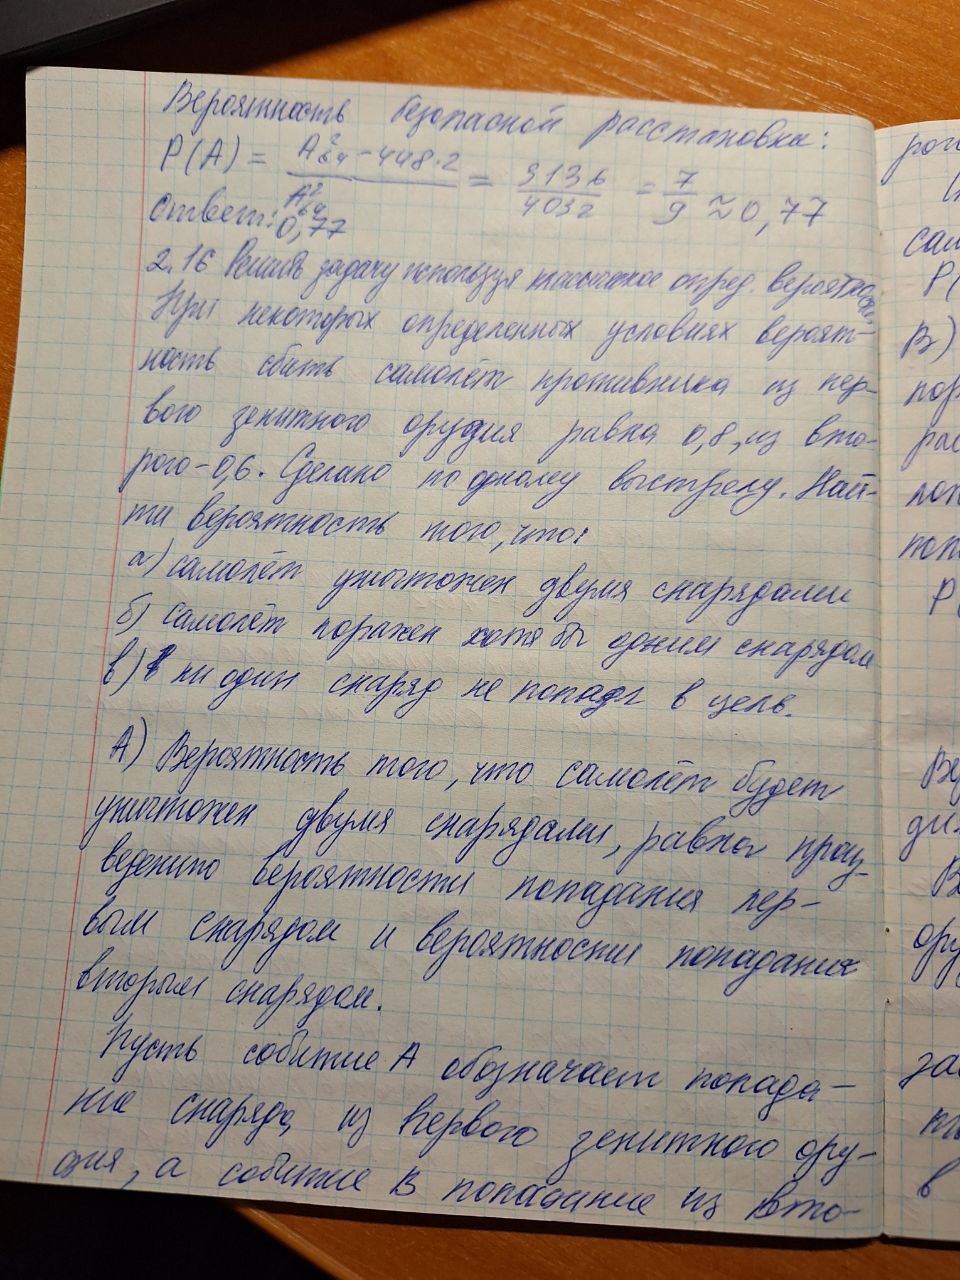 Вероятность безопасной расстановки:
P(A) = (A²₆₄ - 448·2)/A²₆₄ = 3136/4032 = 7/9 ≈ 0,77
Ответ: 0,77
2.16 Решить задачу используя классическое опред. вероятности.
При некоторых определенных условиях вероят-
ность сбить самолёт противника из пер-
вого зенитного орудия равна 0,8, из вто-
рого - 0,6. Сделано по одному выстрелу. Най-
ти вероятность того, что:
а) самолёт уничтожен двумя снарядами
б) самолёт поражен хотя бы одним снарядом
в) ни один снаряд не попадл в цель.
А) Вероятность того, что самолёт будет
уничтожен двумя снарядами, равна произ-
ведению вероятности попадания пер-
вым снарядом и вероятности попадания
вторым снарядом.
Пусть событие А обозначает попада-
ние снаряда из первого зенитного ору-
дия, а событие В попадание из вто-
рог
сам
P(
В)
пор
рас
поп
P(
Ве
ди
В
ору
за
в